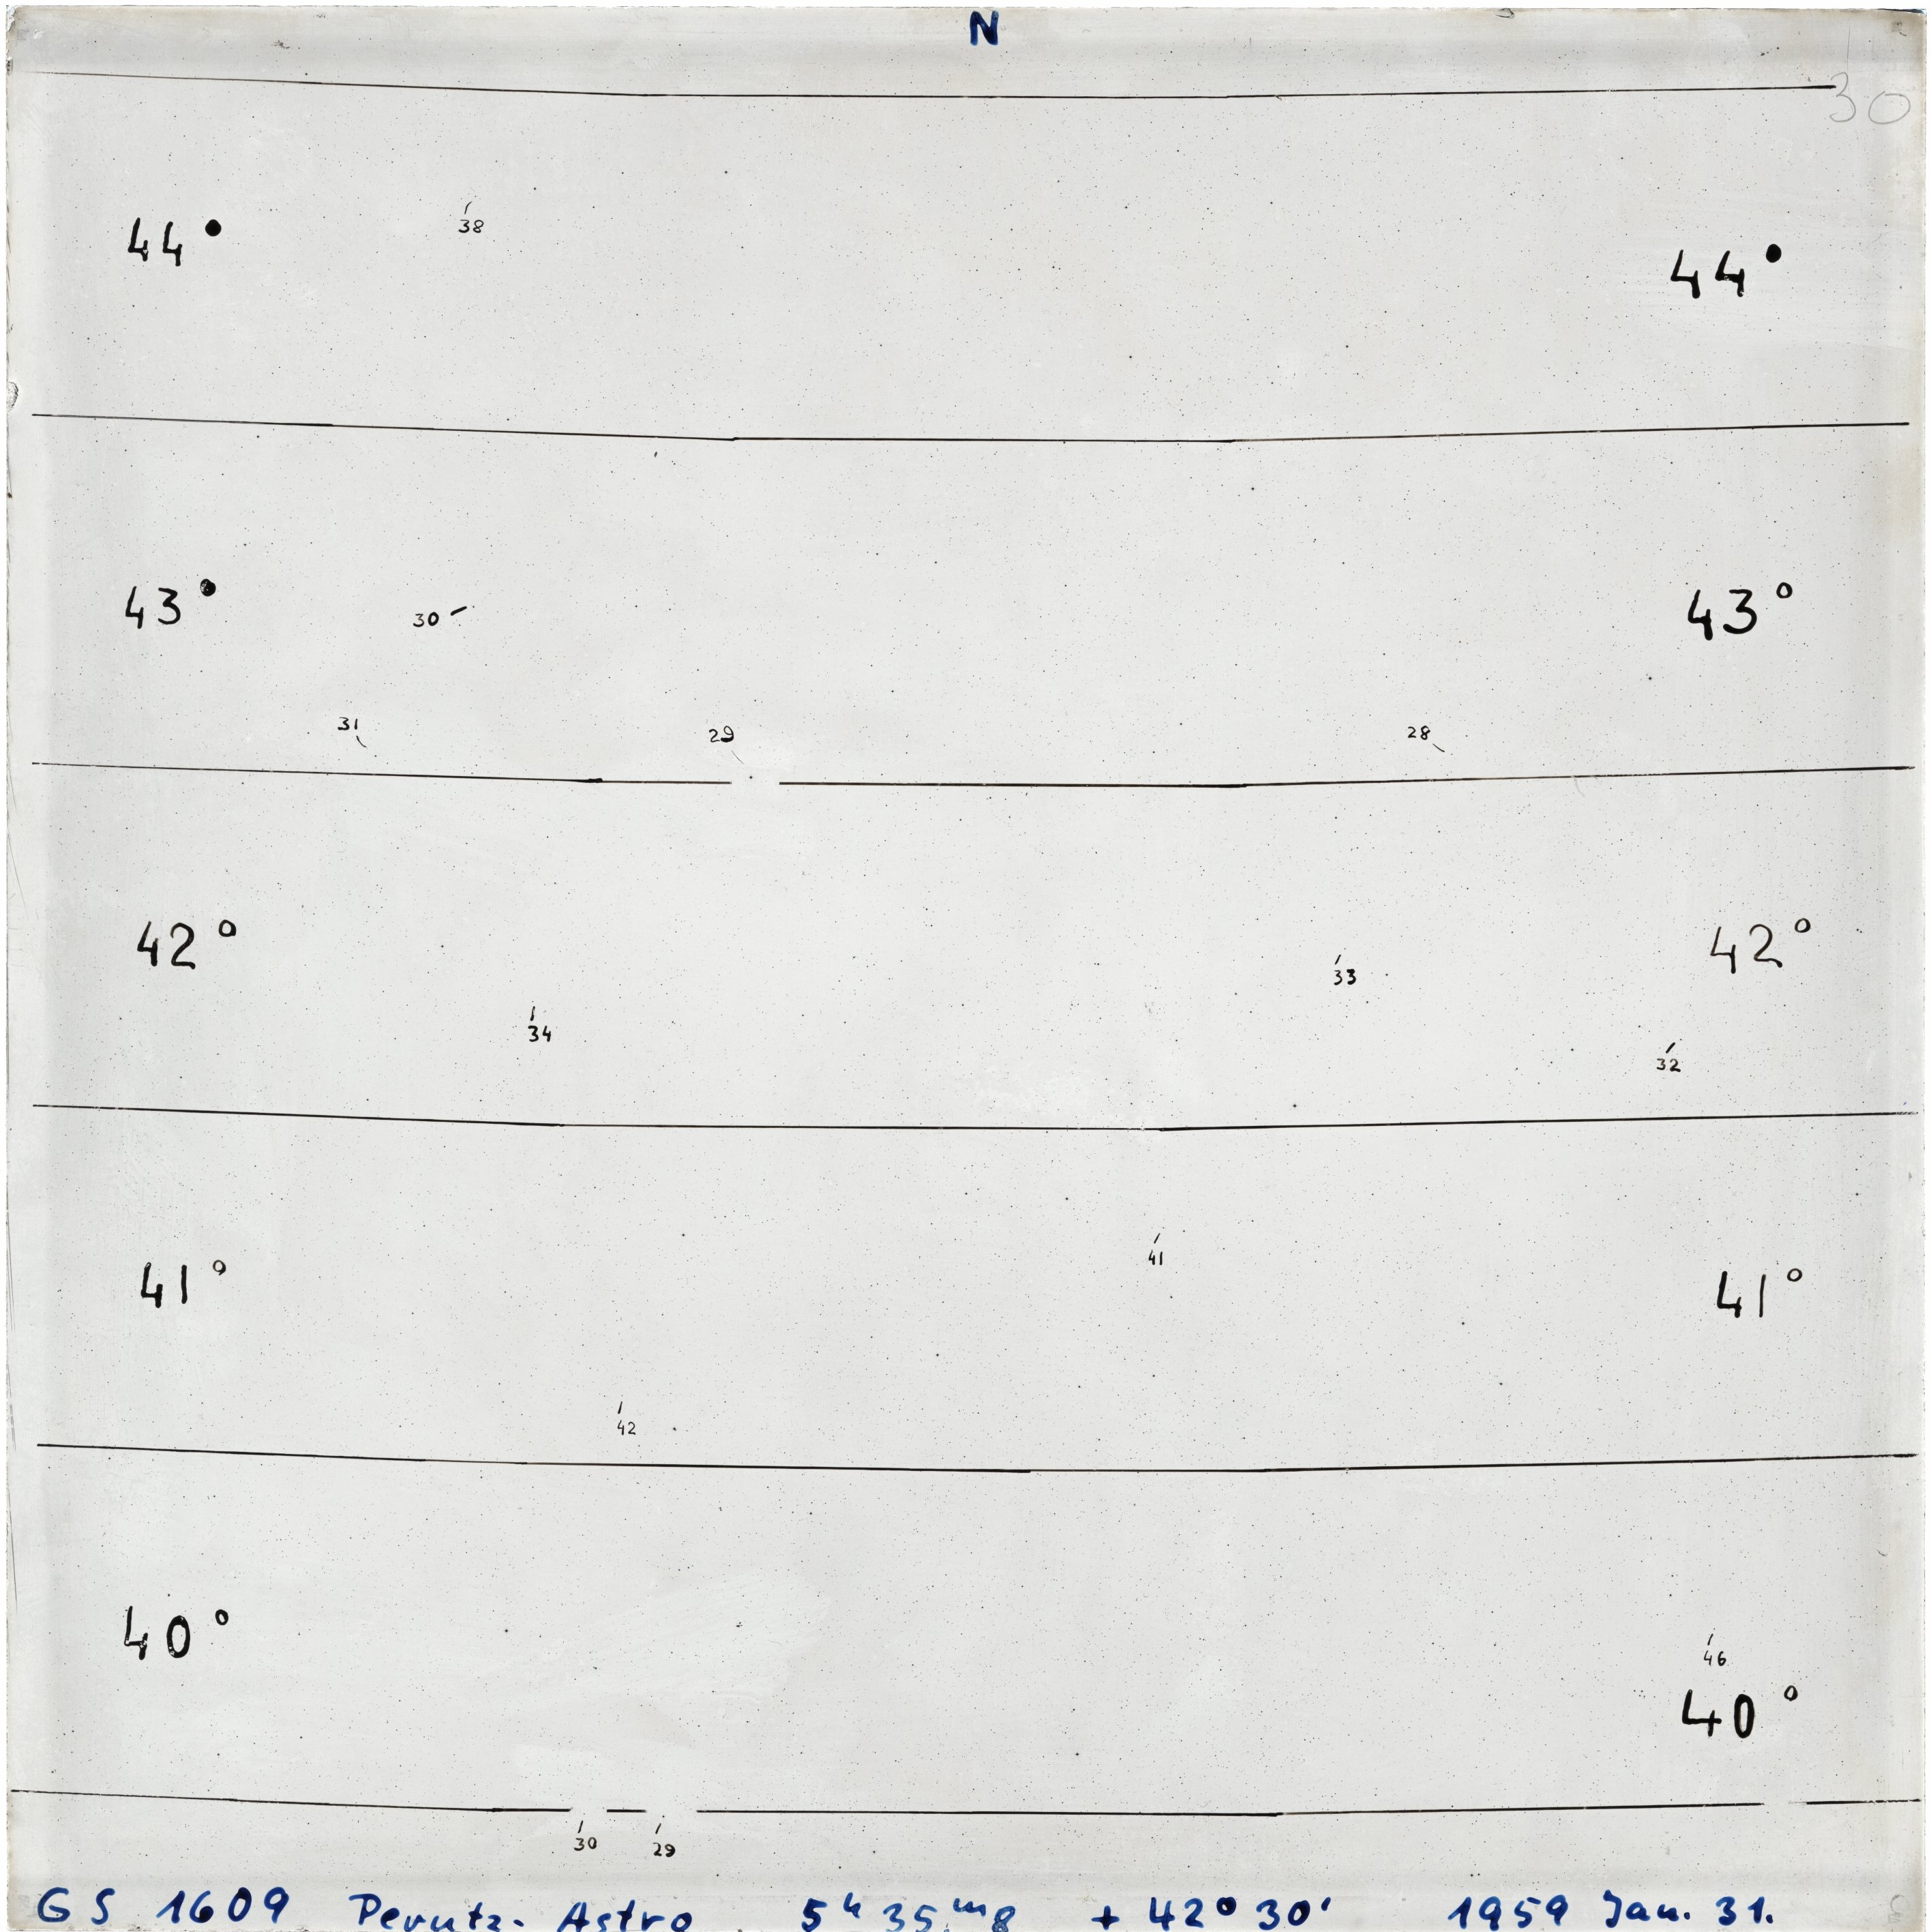 N
30
38
44°
44°
43°
30
43°
31
29
28
42°
42°
33
34
32
41
41°
41°
42
40°
46
40°
30
29
GS 1609 Perutz-Astro 5ʰ 35ᵐ.8 + 42° 30' 1959 Jan. 31.